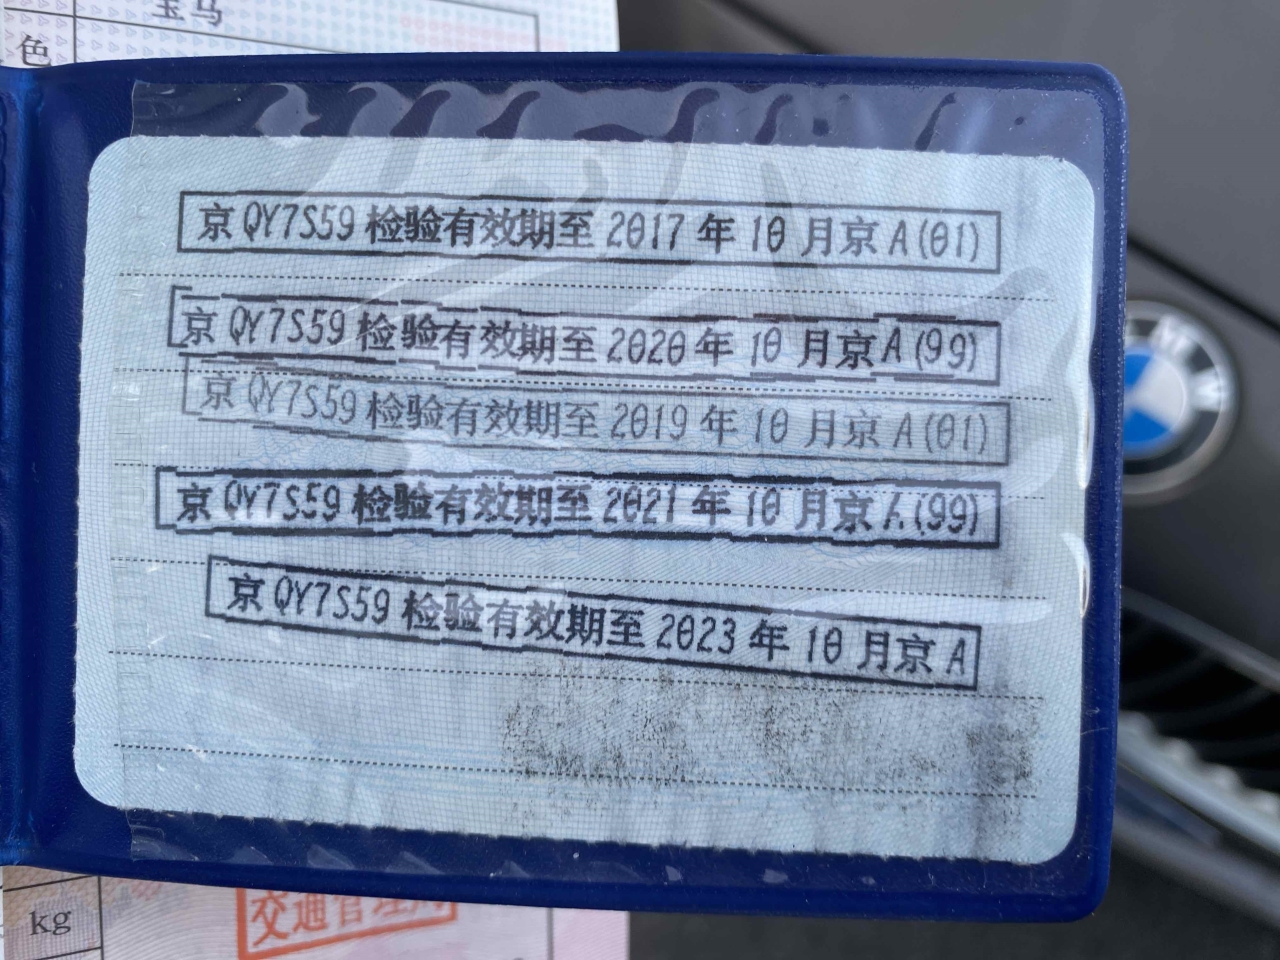 宝马
色
京QY7S59检验有效期至2017年10月京A(01)
京QY7S59检验有效期至2020年10月京A(99)
京QY7S59检验有效期至2019年10月京A(01)
京QY7S59检验有效期至2021年10月京A(99)
京QY7S59检验有效期至2023年10月京A
BMW
kg
交通管理局